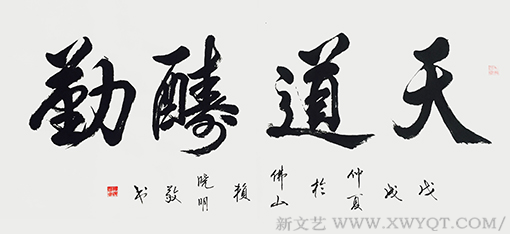 天道醻勤
戊戌仲夏於佛山賴晓明敬书
新文艺：WWW.XWYQT.COM/